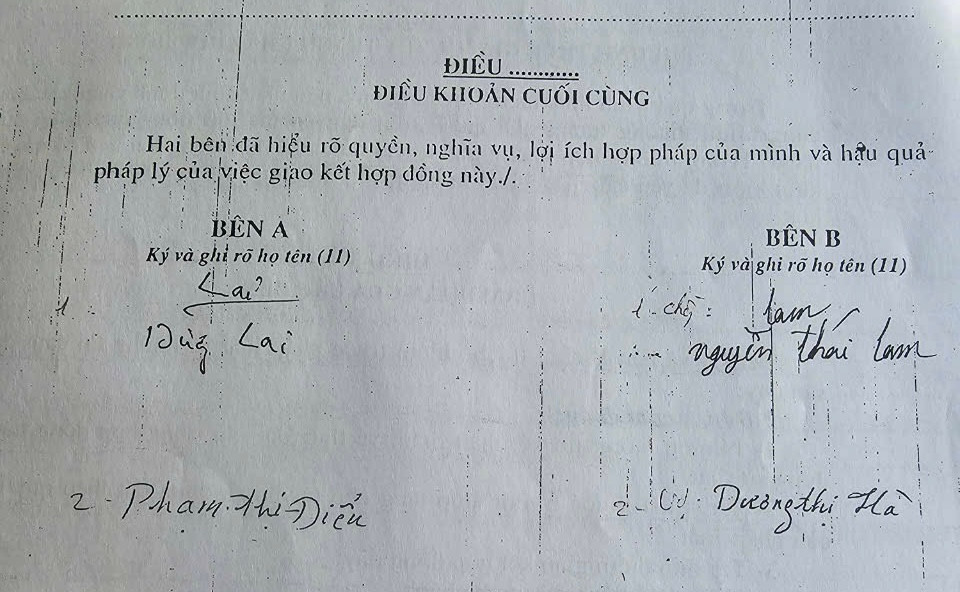 ĐIỀU ............
ĐIỀU KHOẢN CUỐI CÙNG
Hai bên đã hiểu rõ quyền, nghĩa vụ, lợi ích hợp pháp của mình và hậu quả
pháp lý của việc giao kết hợp đồng này./.
BÊN A
Ký và ghi rõ họ tên (11)
Lai
Lai
2 - Phạm Thị Diểu
BÊN B
Ký và ghi rõ họ tên (11)
1 - chồng: Lam
nguyễn thái Lam
2 - Vợ: Dương thị Hà